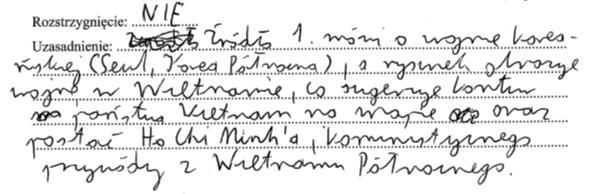 Rozstrzygnięcie: NIE
Uzasadnienie: Źródło 1. mówi o wojnie kore-
ańskiej (Seul, Korea Północna), a rysunek dotyczy
wojny w Wietnamie, co sugeruje kontur
państwa Vietnam na mapie oraz
postać Ho Chi Minh'a, komunistycznego
przywódcy z Wietnamu Północnego.